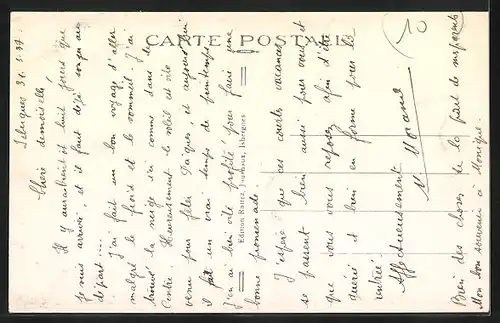 CARTE POSTALE
Edition Rattez, Journaux, Isbergues
Isbergues 31.3.37
Chère demoiselle,
Il y aura bientôt huit jours que
je suis arrivée, et il faut déjà songer au
départ ....
J'ai fait un bon voyage d'aller
malgré le froid et le sommeil. J'ai
trouvé la neige ici comme dans le
Centre. Heureusement le soleil est vite
venu pour fêter Pâques et aujourd'hui
il fait un vrai temps de printemps.
J'en ai bien vite profité pour faire une
bonne promenade.
J'espère que ces courtes vacances
se passent bien aussi pour vous et
que vous vous reposez afin d'être
guérie et bien en forme pour la
rentrée.
Affectueusement
M. Morand
Bien des choses de la part de mes parents
Mon bon souvenir à Monique.